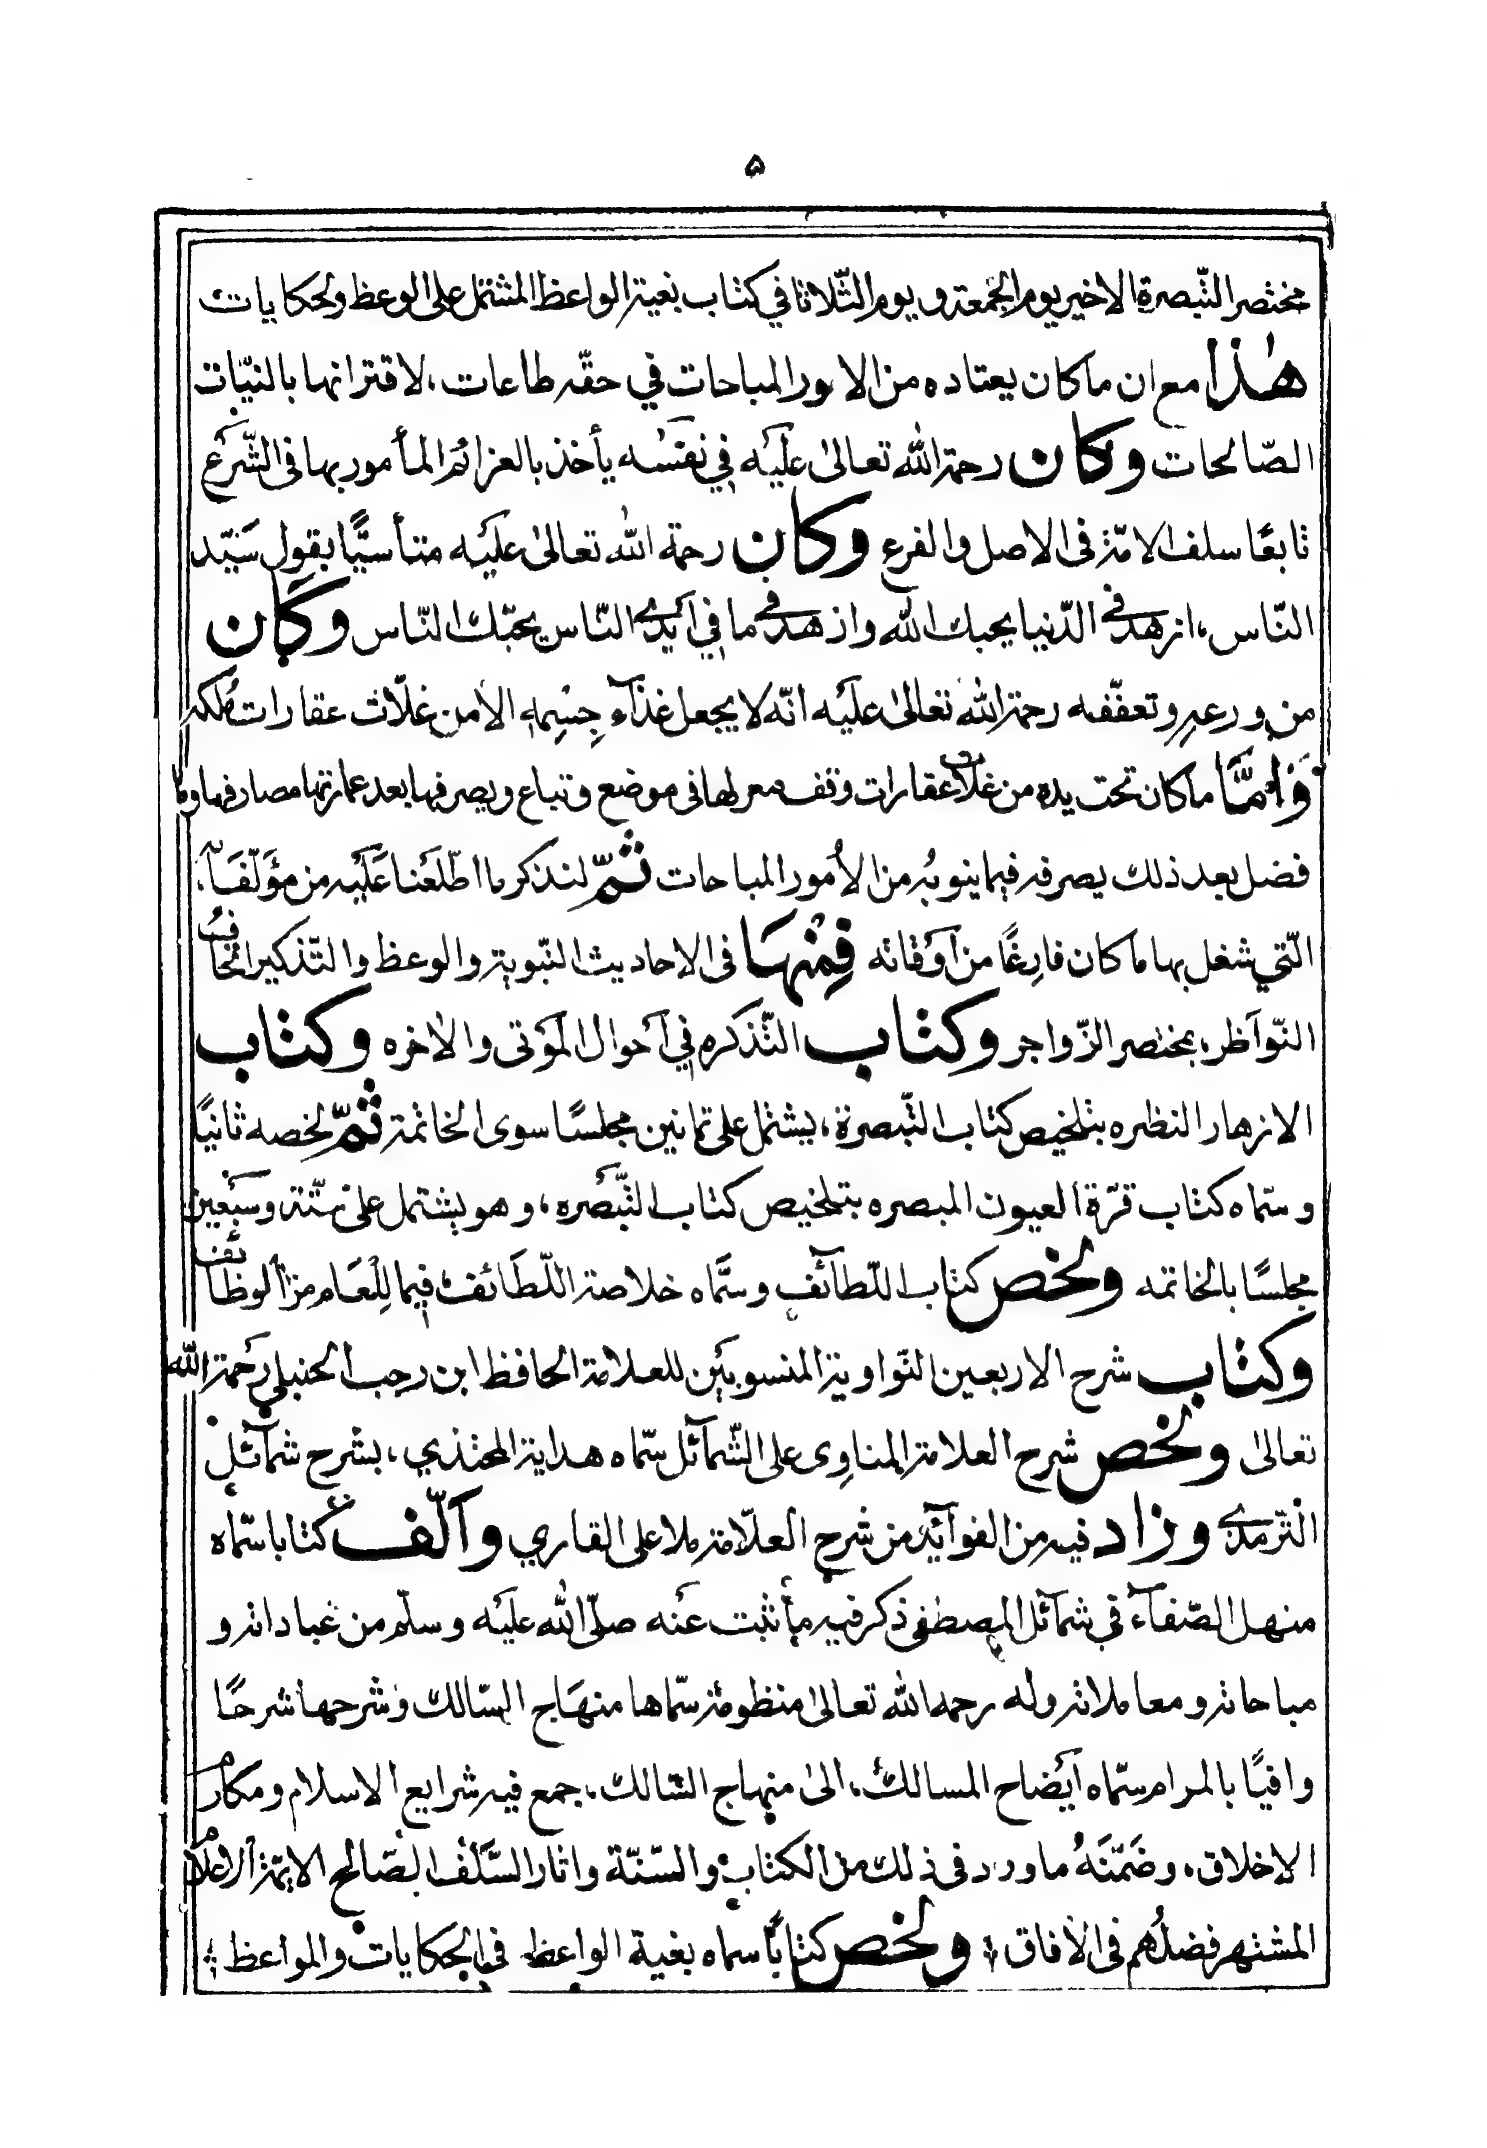 ۵
مختصر التّبصرة الاخير يوم الجمعة و يوم الثّلاثا في كتاب بغية الواعظ المشتمل على الوعظ ولحكايات
هٰذا مع ان ما كان يعتاده من الامور المباحات في حقّه طاعات، لاقترانها بالنيّات
الصّالحات وكان رحمة الله تعالىٰ عليه في نفسه يأخذ بالعزائم المأمور بها فى الشّرع
تابعًا سلف الامّة فى الاصل والفرع وكان رحمة الله تعالىٰ عليه متأسيًّا بقول سَيّد
النّاس، ازهد في الدّنيا يحبك الله وازهد في ما في ايدي النّاس يحبّك النّاس وكان
من ورعه وتعفّفه رحمة الله تعالىٰ عليه انّه لا يجعل غذآء جِسْمه الاّ من غلّات عقارات ملكه
وَامّا ما كان تحت يده من غلّات عقارات وقف معر لها فى موضع وتباع ويصرفها بعد عمارتها مصارفها وما
فضل بعد ذلك يصرفه فيما ينوبُه من الاُمور المباحات ثمّ لنذكر ما اطّلعنا عَلَيه من مؤَلّفَآ،
الّتي شغل بها ما كان فارِغًا من اَوقاته فِمْنهَا فى الاحاديث النّبوية والوعظ والتّذكير اتحاف
النّواَظر، بمختصر الزّواجر وكتاب التّذكره في اَحوال المَوتى والاٰخره وكتاب
الازهار النظره بتلخيص كتاب التّبصرة، يشتمل على ثمانين مجلسًا سوى الخاتمة ثمّ لخصه ثانيًا
وسمّاه كتاب قرّة العيون المبصره بتلخيص كتاب التّبصُره، وهو يشتمل على ستّة وسبعين
مجلسًا بالخاتمه ولخص كتاب اللّطآئف وسمَّاه خلاصة اللّطَائف فيما للِعَام من الوظائف
وكتاب شرح الاربعين النّواوية المنسوبَين للعلامة الحافظ ابن رجب الحنبلي رَحمة الله
تعالىٰ ولخص شرح العلامة المناوِى على الشّمآئل سمّاه هداية المحتذي، بشرح شمآئل
التّرمذي وزاد فيه من الفوآئد من شرح العلّامة ملا على القاري وآلّف كتابا سمّاه
منهل الصّفآء في شمآئل المصطفى ذكر فيه ما ثبت عَنه صلّى الله عليَه وسلّم من عباداته و
مباحاته ومعاملاته وله رحمه الله تعالىٰ منظومة سمّاها منهَاج السّالك وشرحها شرحًا
وافيًا بالمرام سمّاه ايَضاح المسالك، الىٰ منهاج السّالك، جمع فيه شرايع الاسلام ومكارم
الاخلاق، وضَمّنَهُ ما ورد فى ذلك من الكتاب والسّنّة واثار السَّلف الصّالح الايمّة الاعلام
المشتهر فضلُهم فى الاٰفاق ولخص كتابًا سماه بغية الواعظ فى الحكايات والمواعظ